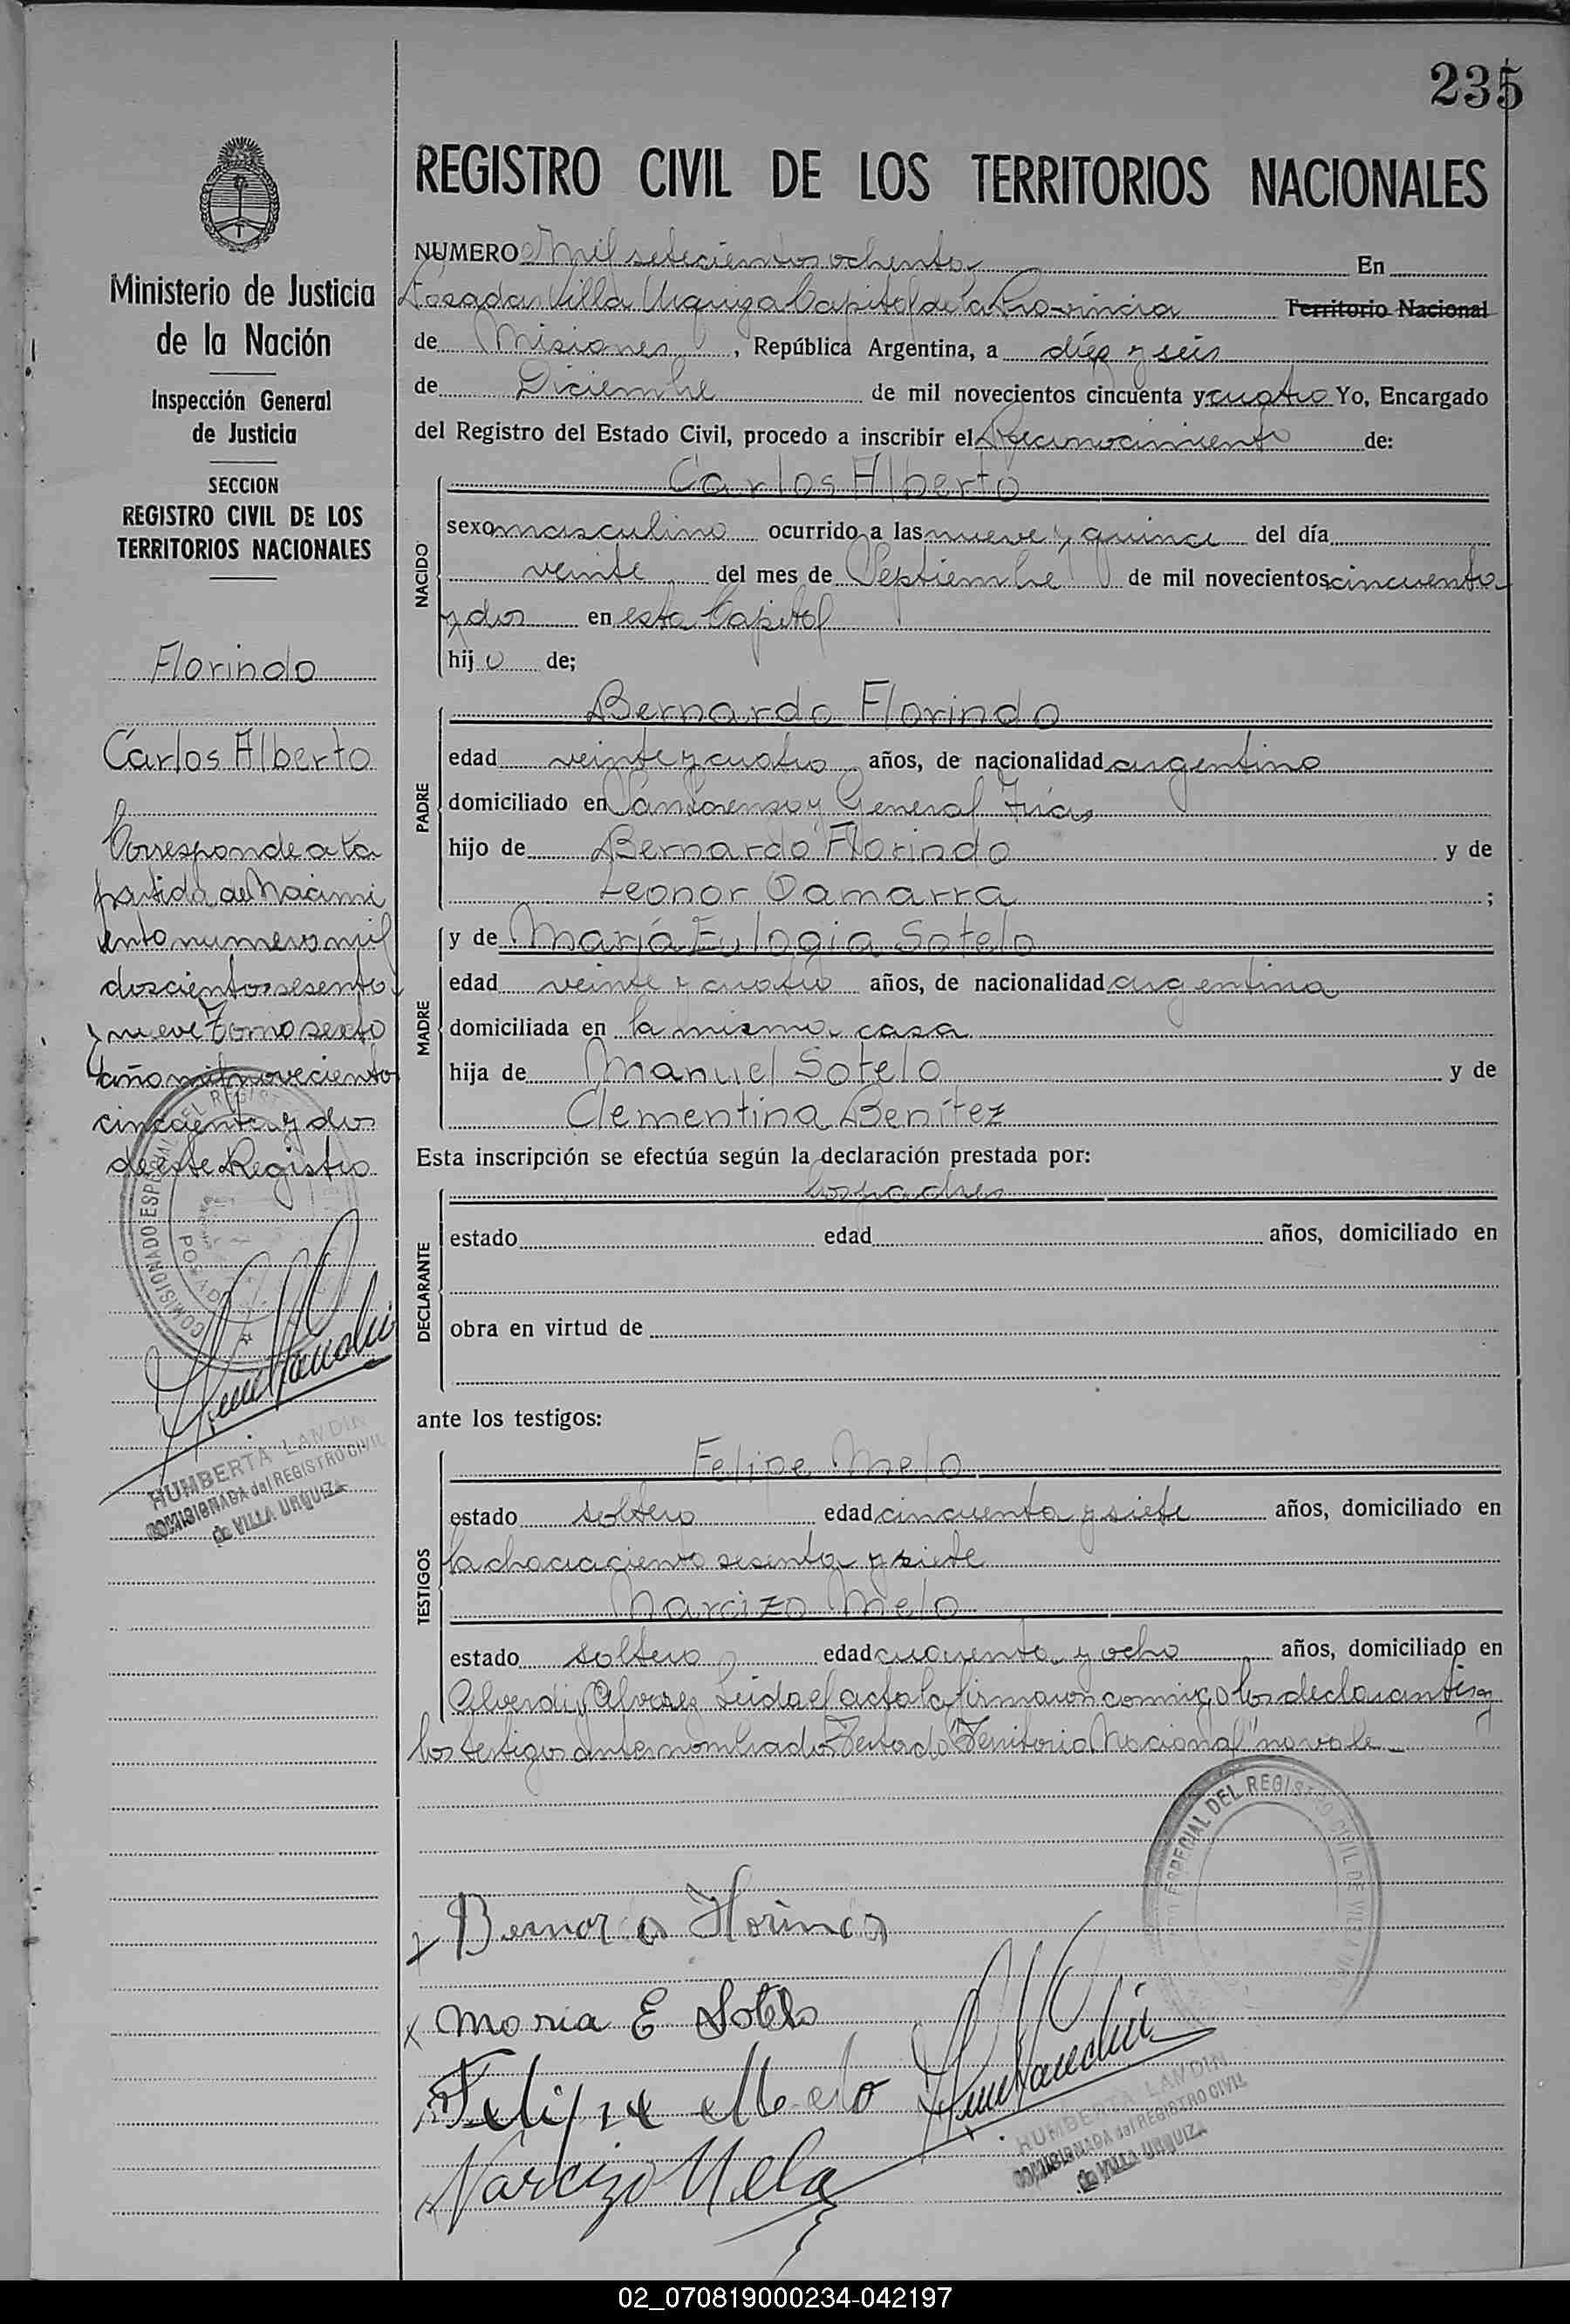 235
REGISTRO CIVIL DE LOS TERRITORIOS NACIONALES
Ministerio de Justicia
de la Nación
Inspección General
de Justicia
SECCION
REGISTRO CIVIL DE LOS
TERRITORIOS NACIONALES
Florindo
Carlos Alberto
Corresponde a la
partida de Nacimi
ento numero mil
doscientos sesenta
y nueve Tomo sexto
año mil novecientos
cincuenta y dos
de este Registro
COMISIONADO ESPECIAL DEL REGIST
HUMBERTA LANDIN
COMISIONADA del REGISTRO CIVIL
de VILLA URQUIZA
NUMERO Mil setecientos ochenta En
Posadas Villa Urquiza Capital de la Provincia Territorio Nacional
de Misiones, República Argentina, a diez y seis
de Diciembre de mil novecientos cincuenta y cuatro Yo, Encargado
del Registro del Estado Civil, procedo a inscribir el Reconocimiento de:
NACIDO
Carlos Alberto
sexo masculino ocurrido a las nueve y quince del día
veinte del mes de Septiembre de mil novecientos cincuenta
y dos en esta Capital
hijo de;
PADRE
Bernardo Florindo
edad veinte y cuatro años, de nacionalidad argentino
domiciliado en San Lorenzo y General Frías
hijo de Bernardo Florindo y de
Leonor Gamarra;
MADRE
y de María Eulogia Sotelo
edad veinte y cuatro años, de nacionalidad argentina
domiciliada en la misma casa
hija de Manuel Sotelo y de
Clementina Benítez
Esta inscripción se efectúa según la declaración prestada por:
DECLARANTE
los padres
estado edad años, domiciliado en
obra en virtud de
ante los testigos:
TESTIGOS
Felipe Melo
estado soltero edad cincuenta y siete años, domiciliado en
la chacra ciento sesenta y siete
Narcizo Melo
estado soltero edad cuarenta y ocho años, domiciliado en
Alverdi y Alvarez Leida el acta la firmaron conmigo los declarantes y
los testigos antes nombrados Testado "Territorio Nacional" no vale
ESPECIAL DEL REGISTRO CIVIL DE VILLA
Bernardo Florindo
Maria E Sotelo
Felipe Melo
Narcizo Mela
HUMBERTA LANDIN
COMISIONADA del REGISTRO CIVIL
de VILLA URQUIZA
02_070819000234-042197